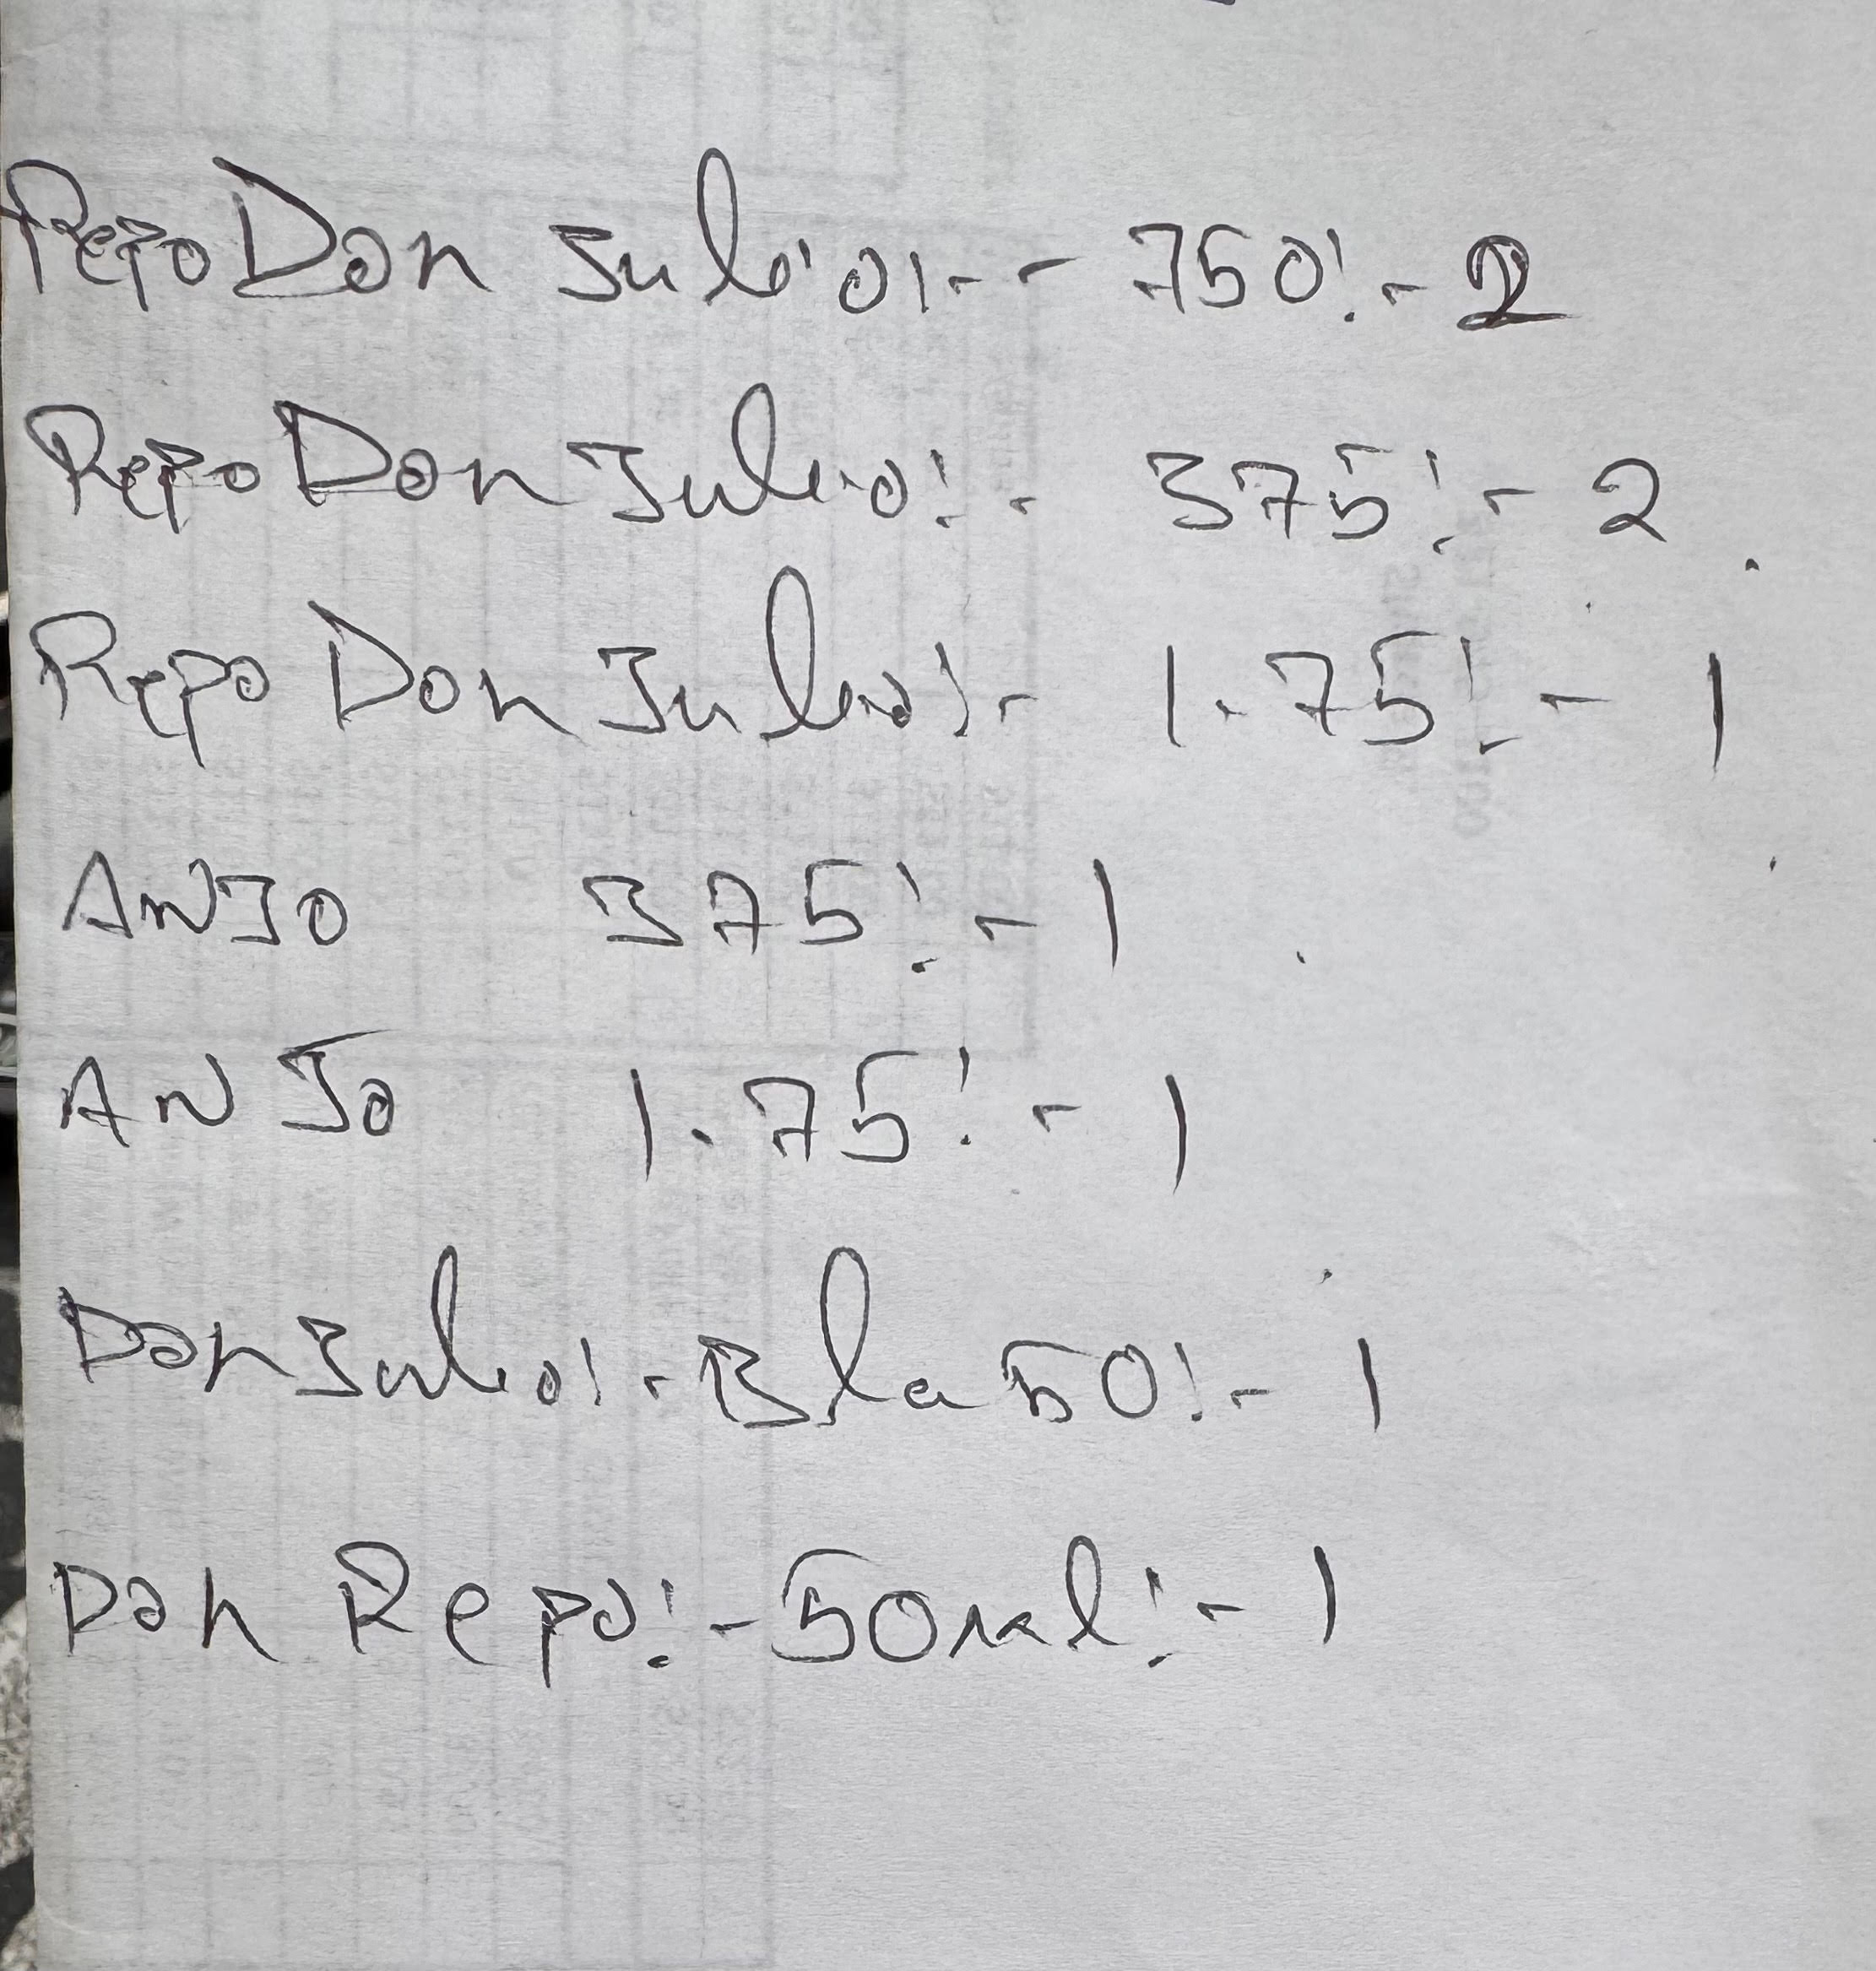 Repo Don Julio:-- 750:- 2
Repo Don Julio:- 375:- 2
Repo Don Julio:- 1.75:- 1
ANJO 375:- 1
ANJO 1.75:- 1
Don Julio:- Bla 50:- 1
Don Repo:- 50ml:- 1